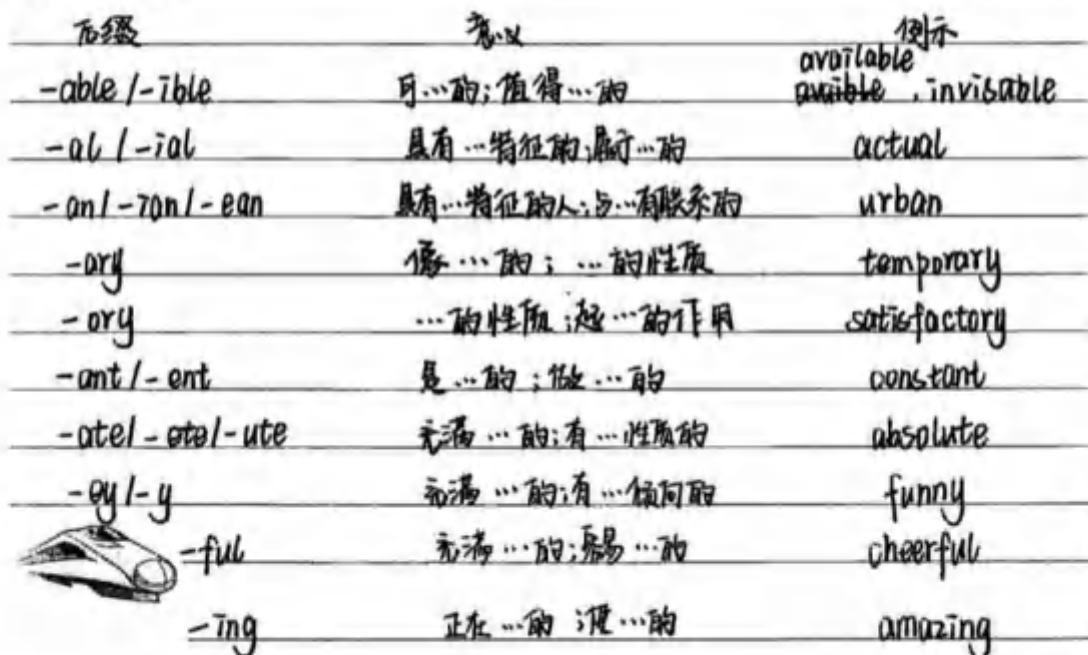 后缀 意义 例示
available
-able / -ible 可…的;值得…的 avaible , invisable
-al / -ial 具有…特征的;属于…的 actual
-an / -ian / -ean 具有…特征的人;与…有联系的 urban
-ary 像…的; …的性质 temporary
-ory …的性质;起…的作用 satisfactory
-ant / -ent 是…的;做…的 constant
-ate / -ete / -ute 充满…的;有…性质的 absolute
-ey / -y 充满…的;有…倾向的 funny
-ful 充满…的;易…的 cheerful
-ing 正在…的 ;使…的 amazing